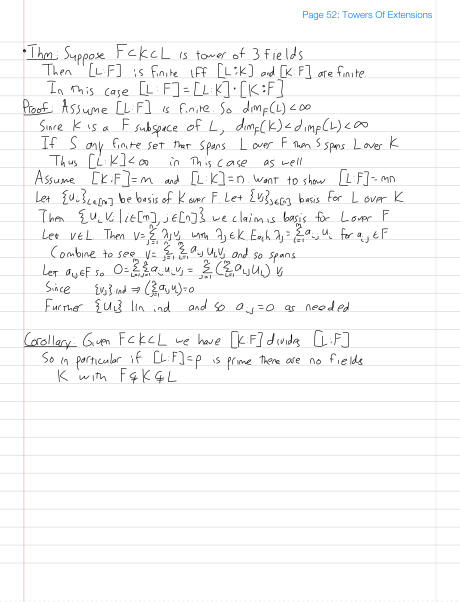 Page 52: Towers Of Extensions
• Thm: Suppose F⊂K⊂L is tower of 3 fields
Then [L:F] is finite iff [L:K] and [K:F] are finite
In this case [L:F]=[L:K]·[K:F]
Proof: Assume [L:F] is finite. So dim_F(L)<∞
Since K is a F subspace of L, dim_F(K)<dim_F(L)<∞
If S any finite set that spans L over F then S spans L over K
Thus [L:K]<∞ in this case as well
Assume [K:F]=m and [L:K]=n. Want to show [L:F]=mn
Let {u_i}_{i∈[m]} be basis of K over F Let {v_j}_{j∈[n]} basis for L over K
Then {u_i v_j | i∈[m], j∈[n]} we claim is basis for L over F
Let v∈L Then v=∑_{j=1}^n λ_j v_j with λ_j∈K Each λ_j=∑_{i=1}^m a_ij u_i for a_ij∈F
Combine to see v=∑_{j=1}^n ∑_{i=1}^m a_ij u_i v_j and so spans
Let a_ij∈F so 0=∑∑ a_ij u_i v_j = ∑_{j=1}^n (∑_{i=1}^m a_ij u_i) v_j
Since {v_j} ind ⇒ (∑ a_ij u_i)=0
Further {u_i} lin ind and so a_ij=0 as needed
Corollary: Given F⊂K⊂L we have [K:F] divides [L:F]
So in particular if [L:F]=p is prime there are no fields
K with F⊊K⊊L